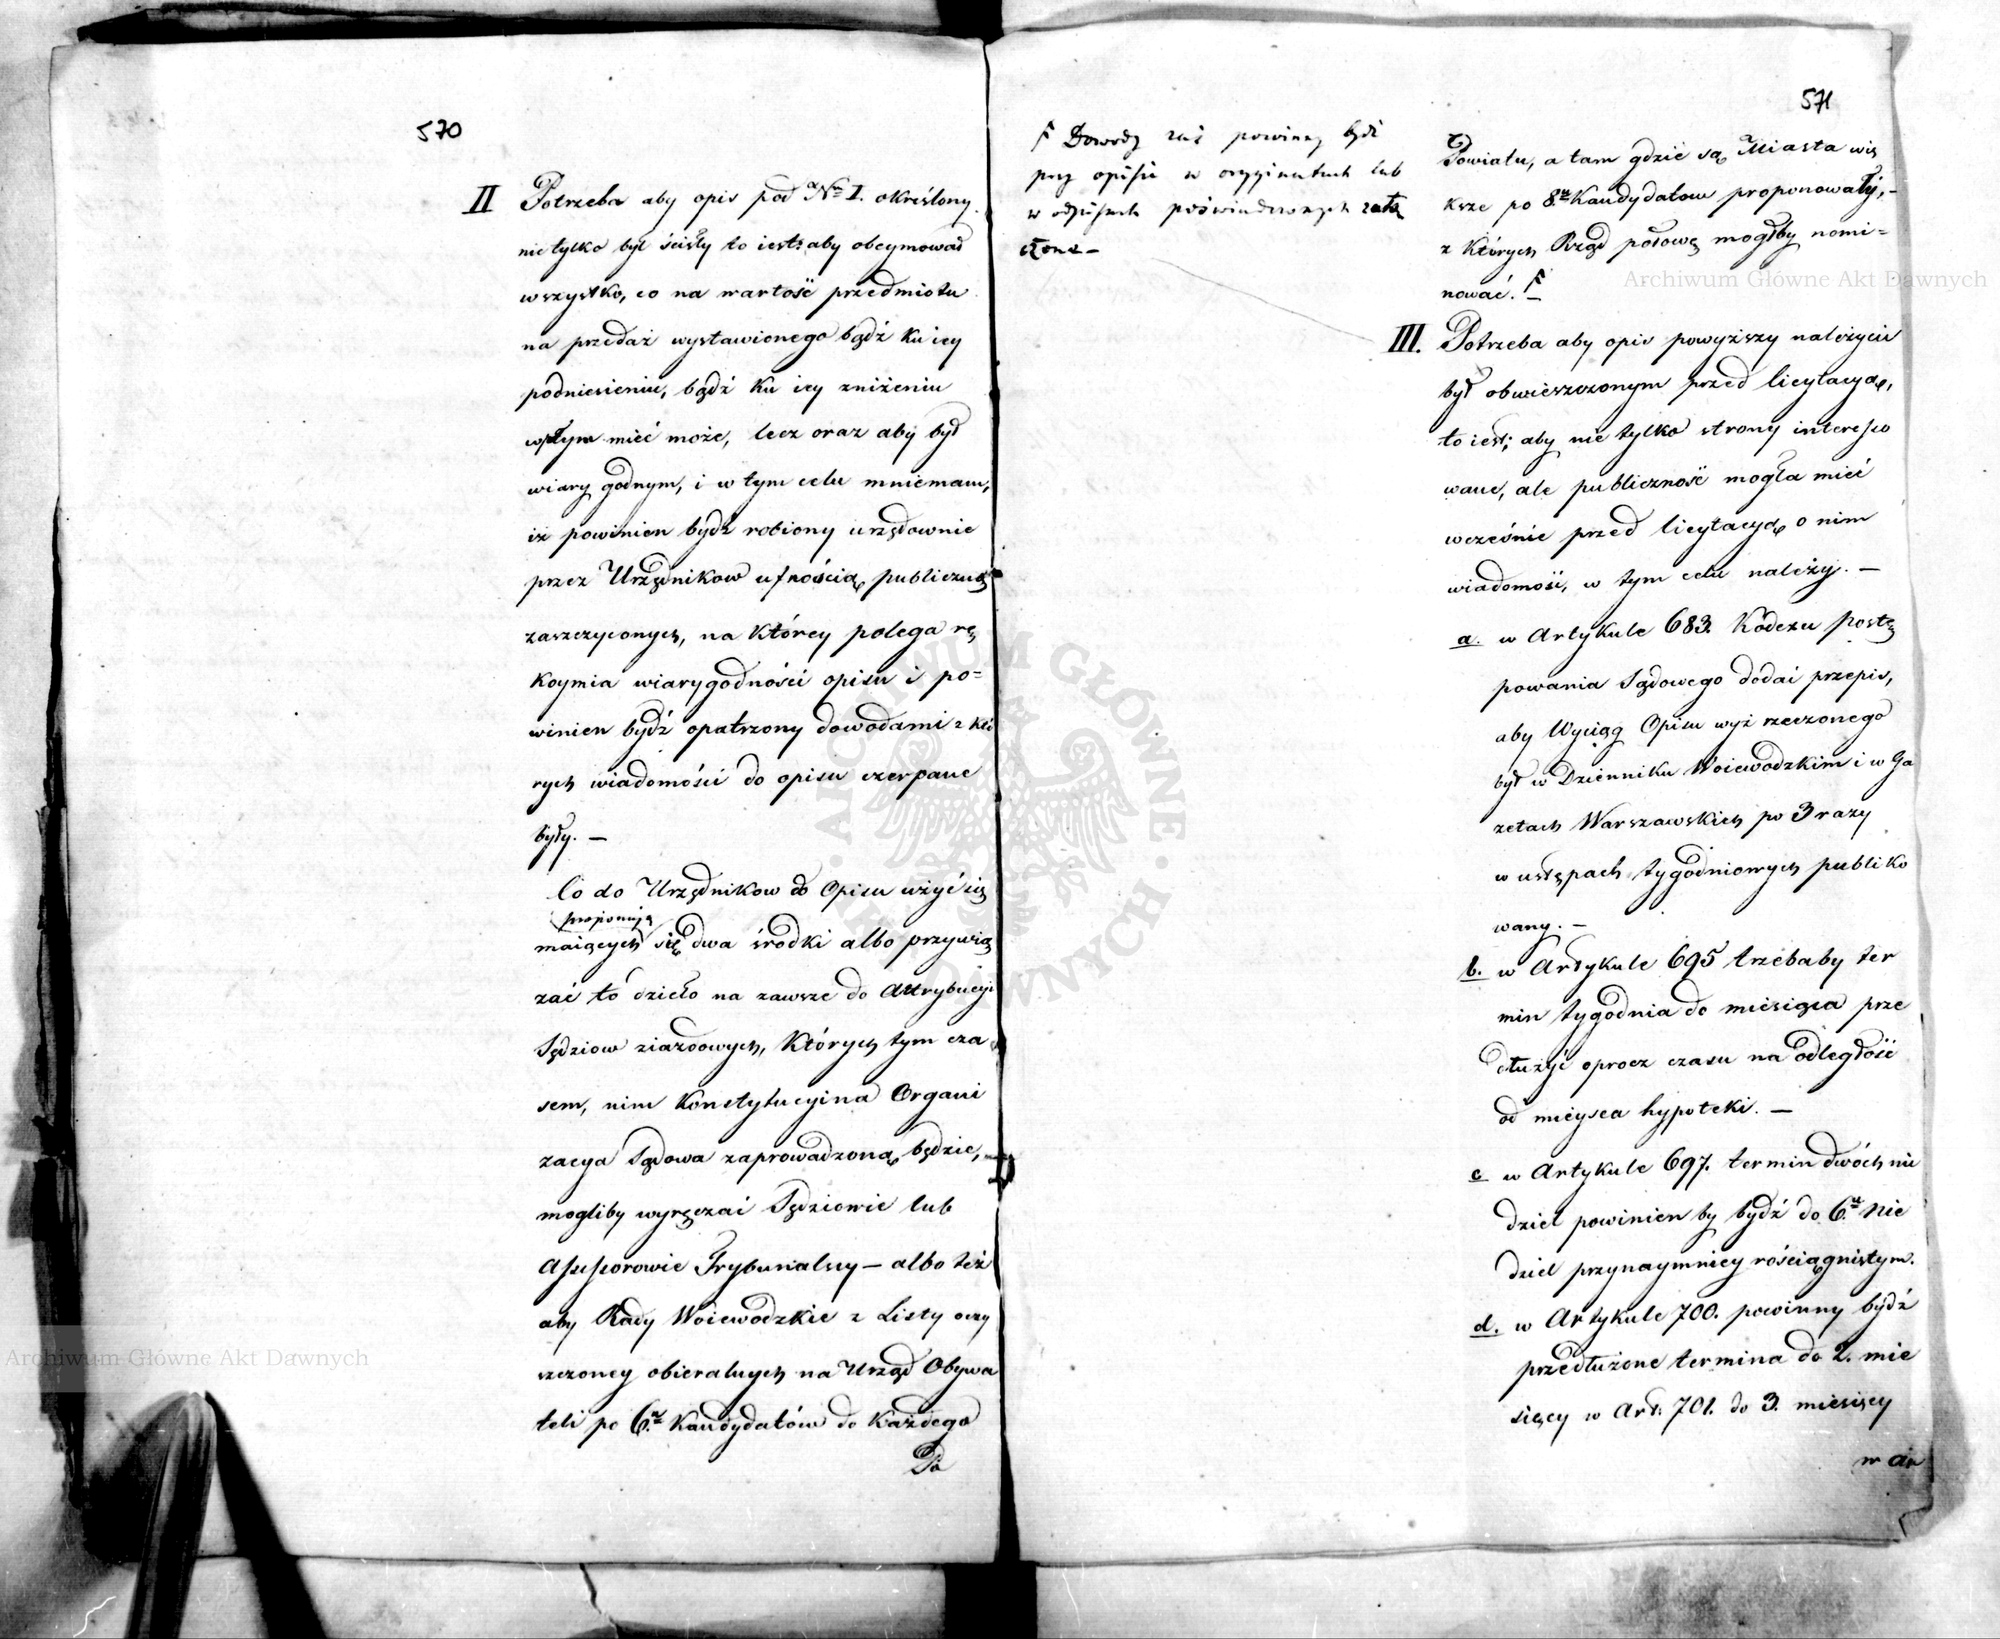 570
II Potrzeba aby opis pod Nrm I. określony
nietylko był ścisły to iest: aby obeymował
wszystko, co na wartość przedmiotu
na przedaż wystawionego bądź ku iey
podniesieniu, bądź ku iey zniżeniu
wpływ mieć może, lecz oraz aby był
wiary godnym, i w tym celu mniemam,
iż powinien bydź robiony urzędownie
przez Urzędnikow ufnością publiczną
zaszczyconych, na którey polega rę
koymia wiarygodności opisu i po=
winien bydź opatrzony dowodami z któ
rych wiadomości do opisu czerpane
były. —
Co do Urzędnikow do Opisu użyć się
proponuję
maiących się dwa środki albo przywią
zać to dzieło na zawsze do Attrybucyi
Sędziow ziazdowych, których tym cza
sem, nim Konstytucyina Organi
zacya Sądowa zaprowadzoną będzie,
mogliby wyręczać Sędziowie lub
Assessorowie Trybunalscy — albo też
aby Rady Woiewodzkie z Listy oczy
szczoney obieralnych na Urząd Obywa
teli po 6u Kandydatów do każdego
Po
571
Ƒ Dowody zaś powinny bydź
przy opisie w oryginałach lub
w odpisach poświadczonych załą
czone —
Powiatu, a tam gdzie są Miasta wię
ksze po 8u Kandydatow proponowały, -
z których Rząd połowę mogłby nomi=
nować. Ƒ
III. Potrzeba aby opis powyższy należycie
był obwieszczonym przed licytacyą,
to iest; aby nie tylko strony interesso
wane, ale publiczność mogła mieć
wcześnie przed licytacyą o nim
wiadomość, w tym celu należy. —
a. w Artykule 683. Kodexu postę
powania Sądowego dodać przepis,
aby Wyciąg Opisu wyż rzeczonego
był w Dzienniku Woiewodzkim i w Ga
zetach Warszawskich po 3 razy
w ustępach tygodniowych publiko
wany. —
b. w Artykule 695 trzebaby ter
min tygodnia do miesiąca prze
dłużyć oprocz czasu na odległość
od mieysca hypoteki. —
c w Artykule 697. termin dwóch nie
dziel powinien by bydź do 6u Nie
dziel przynaymniey rościągnistym.
d. w Artykule 700. powinny bydź
przedłużone termina do 2. mie
sięcy w Art: 701. do 3. miesięcy
w Ar
Archiwum Główne Akt Dawnych
Archiwum Główne Akt Dawnych
ARCHIWUM GŁÓWNE AKT DAWNYCH